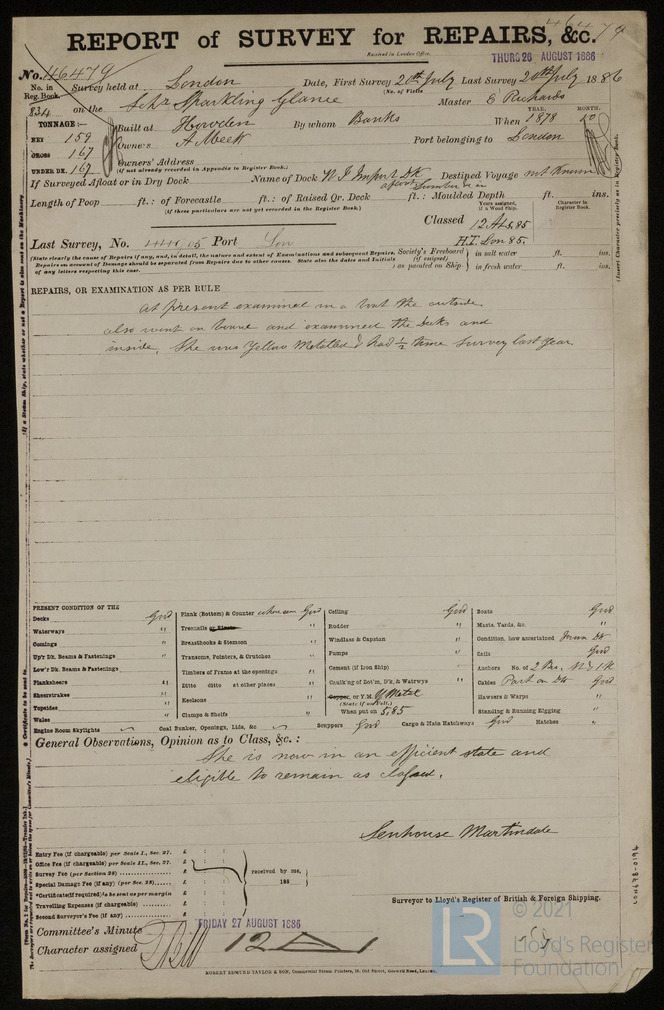 46479
REPORT of SURVEY for REPAIRS, &c.
Received in London Office,
THURS 26 AUGUST 1886
No. 46479
No. in Reg. Book. 834
Survey held at London
Date, First Survey 20th July Last Survey 20th July 1886
(No. of Visits
on the Schr Sparkling Glance
Master E Richards
TONNAGE:—
NET 159
GROSS 167
UNDER DK. 167
Built at Howden
By whom Banks
When 1878 10
YEAR. MONTH.
Owners A Meek
Port belonging to London
Owners' Address
(if not already recorded in Appendix to Register Book.)
If Surveyed Afloat or in Dry Dock
Name of Dock W I Import Dk
afloat
Destined Voyage not known
Length of Poop ft.: of Forecastle ft.: of Raised Qr. Deck ft.: Moulded Depth ft. ins.
(If these particulars are not yet recorded in the Register Book.)
Years assigned, if a Wood Ship.
Character in Register Book.
Classed 12 A1 5,85
H.T. Lon 85.
Last Survey, No. 44405 Port Lon
(State clearly the cause of Repairs if any, and, in detail, the nature and extent of Examinations and subsequent Repairs.
Repairs on account of Damage should be separated from Repairs due to other causes. State also the dates and Initials
of any letters respecting this case.
Society's Freeboard (if assigned) as painted on Ship
in salt water ft. ins.
in fresh water ft. ins.
(Insert Character precisely as in Register Book.
REPAIRS, OR EXAMINATION AS PER RULE
At present examined in a boat the outside
also went on board and examined the decks and
inside. She was Yellow Metalled & had ½ time survey last year.
PRESENT CONDITION OF THE
Decks Good
Waterways "
Comings "
Up'r Dk. Beams & Fastenings "
Low'r Dk. Beams & Fastenings
Planksheers "
Sheerstrakes "
Topsides "
Wales "
Engine Room Skylights
Plank (Bottom) & Counter where seen Good
Treenails "
Breasthooks & Stemson "
Transoms, Pointers, & Crutches "
Timbers of Frame at the openings "
Ditto ditto at other places "
Keelsons "
Clamps & Shelfs "
Coal Bunker, Openings, Lids, &c
Ceiling Good
Rudder "
Windlass & Capstan "
Pumps "
Cement (if Iron Ship)
Caulk'ng of Bot'm, D'k, & Watrwys "
Copper, or Y.M. Y Metal
(State if on Felt.)
When put on 5,85
Scuppers Good
Cargo & Main Hatchways Good
Boats Good
Masts, Yards, &c. "
Condition, how ascertained From Dk
Sails Good
Anchors No. of 2 Brs,
Cables Part on Dk Good
Hawsers & Warps "
Standing & Running Rigging "
Hatches "
General Observations, Opinion as to Class, &c.:
She is now in an efficient state and
eligible to remain as classed.
Senhouse Martindale
Surveyor to Lloyd's Register of British & Foreign Shipping.
Entry Fee (if chargeable) per Scale I., Sec. 27. £ : :
Office Fee (if chargeable) per Scale II., Sec. 27. £ : :
Survey Fee (per Section 28) £ : :
Special Damage Fee (if any) (per Sec. 28) £ : :
*Certificate (if required) to be sent as per margin £ : :
Travelling Expenses (if chargeable) £ : :
Second Surveyor's Fee (if any) £ : :
received by me,
188
Committee's Minute FRIDAY 27 AUGUST 1886
Character assigned 12 A 1
ROBERT EDMUND TAYLOR & SON, Commercial Steam Printers, 19, Old Street, Goswell Road, London.
LON678-0194
LR
© 2021
Lloyd's Register
Foundation